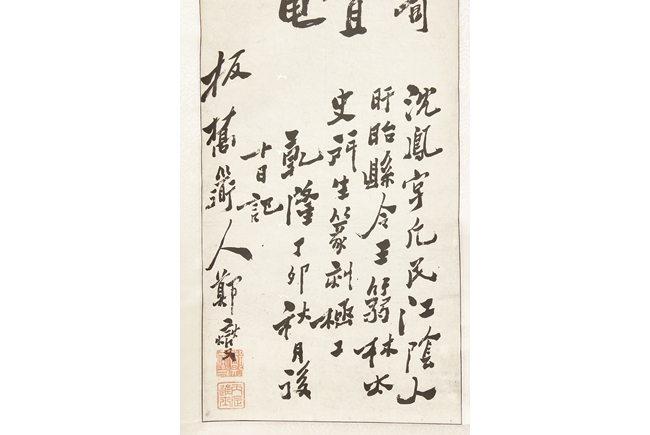 沈鳳字凡民江陰人
盱眙縣令王篛林太
史生篆刻極工
乾隆丁卯秋月後
十日記
板橋道人鄭燮